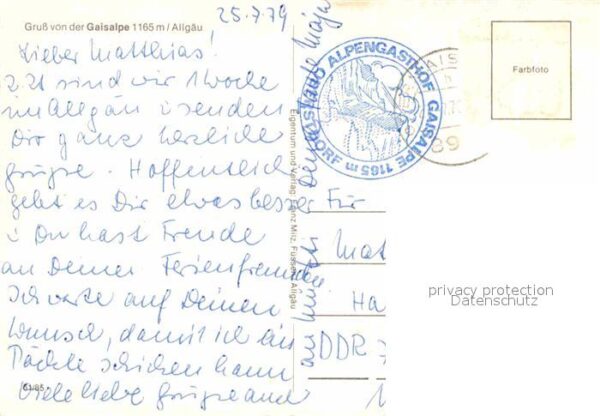 25.7.79
Gruß von der Gaisalpe 1165 m / Allgäu
Lieber Matthias!
z. Zt sind wir 1 Woche
im Allgäu u senden
Dir ganz herzliche
Grüße. Hoffentlich
geht es Dir etwas besser
u Du hast Freude
an Deinen Ferienfreunden
Ich warte auf Deinen
Wunsch, damit ich ein
Päckle schicken kann
Viele liebe Grüße auch
61/85
Eigentum und Verlag Franz Milz, Füssen/Allgäu
ALPENGASTHOF GAISALPE 1165 m
DORF
89
Farbfoto
Für
Mat
Ha
DDR
privacy protection
Datenschutz